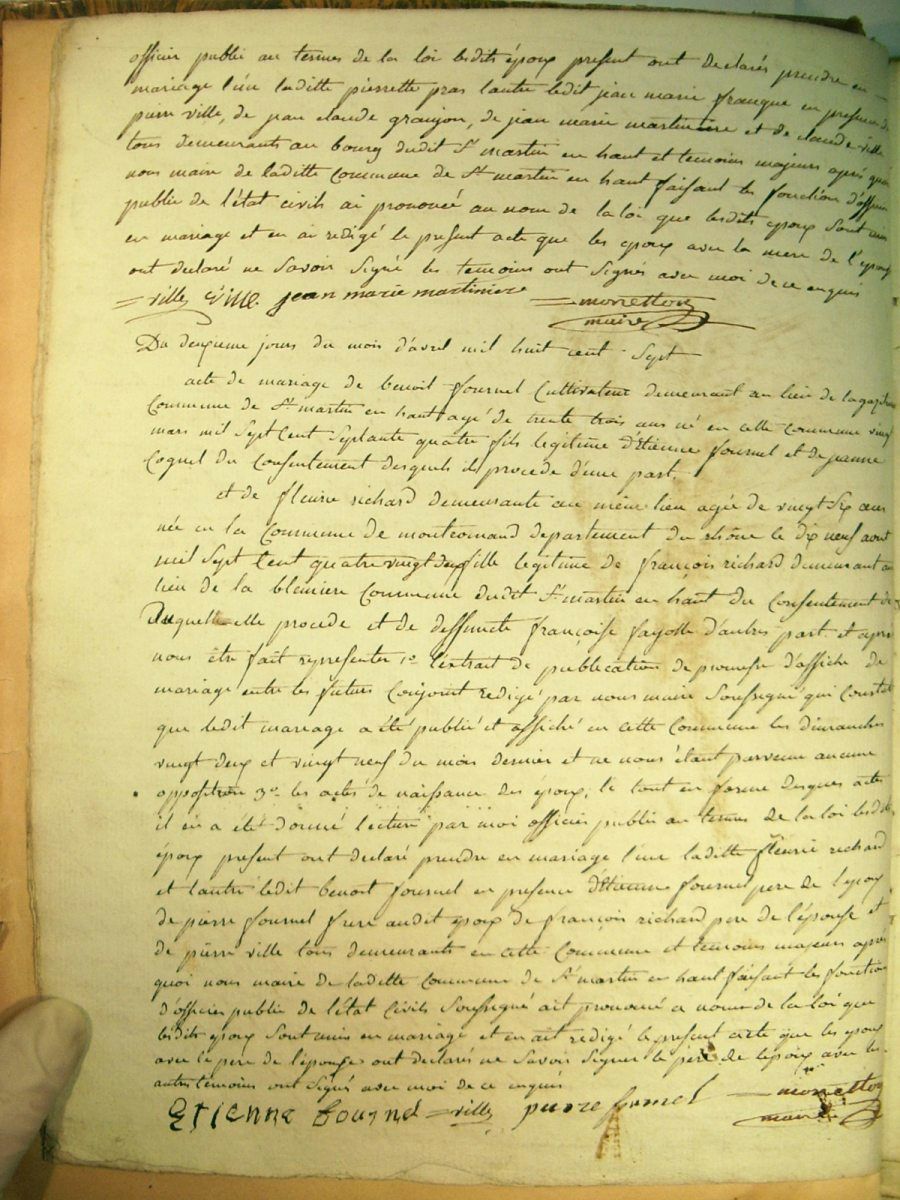 officier public au termes de la loi lesdits époux present ont declarés prendre en
mariage l'un laditte pierrette pras lautre ledit jean marie franque en presence de
pierre ville, de jean claude granjon, de jean marie martiniere et de claude ville
tous demeurants au bourg dudit St martin en haut et temoins majeurs apres quoi
nous maire de laditte Commune de St martin en haut faisant les fonction d'officier
public de l'état civils ai prononcé au nom de la loi que lesdits epoux sont unis
en mariage et en ai redigé le present acte que les epoux avec la mere de l'epoux
ont declaré ne Savoir Signé les temoins ont Signés avec moi de ce enquis
ville ville jean marie martiniere
maire
Du deuxieme jours du mois d'avril mil huit cent Sept
acte de mariage de benoit fournel Cultivateur demeurant au lieu de
Commune de St martin en haut agé de trente trois ans né en cette Commune vingt
mars mil Sept Cent Septante quatre fils legitime d'Etienne fournel et de jeanne
Coquel du Consentement desquels il procede d'une part.
et de fleurie richard demeurante au même lieu agée de vingt Six ans
née en la Commune de montromand departement du rhône le dix neuf aout
mil Sept Cent quatre vingt fille legitime de françois richard demeurant au
lieu de la Commune dudit St martin en haut du Consentement de
Duquelle elle procede et de deffuncte françoise fayolle d'autres part et apres
nous être fait representer 1° l'extrait de publication de promesse d'affiche de
mariage entre les futurs Conjoint redigé par nous maire Soussigné qui Constat
que ledit mariage a été publié et affiché en cette Commune les dimanches
vingt deux et vingt neuf du mois dernier et ne nous étant parvenu aucune
opposition 3° les actes de naissance des époux, le tout en forme desques acte
il en a été donné lecture par moi officier public au termes de la loi lesdits
époux present ont declaré prendre en mariage l'une laditte fleurie richard
et lautre ledit benoit fournel en presence d'Etienne fournel pere de l'epoux
de pierre fournel frere audit epoux de françois richard pere de l'épouse et
de pierre ville tous demeurants en cette Commune et temoins majeurs après
quoi nous maire de laditte Commune de St martin en haut faisant les fonction
d'officier public de l'état Civils Soussigné ait prononcé a nom de la loi que
lesdits epoux Sont unis en mariage et en ait redigé le present acte que les epoux
avec le pere de l'épouse ont declarés ne Savoir Signer le pere de lépoux avec les
autres temoins ont Signés avec moi de ce enquis
Etienne Fournel ville pierre fournel
maire